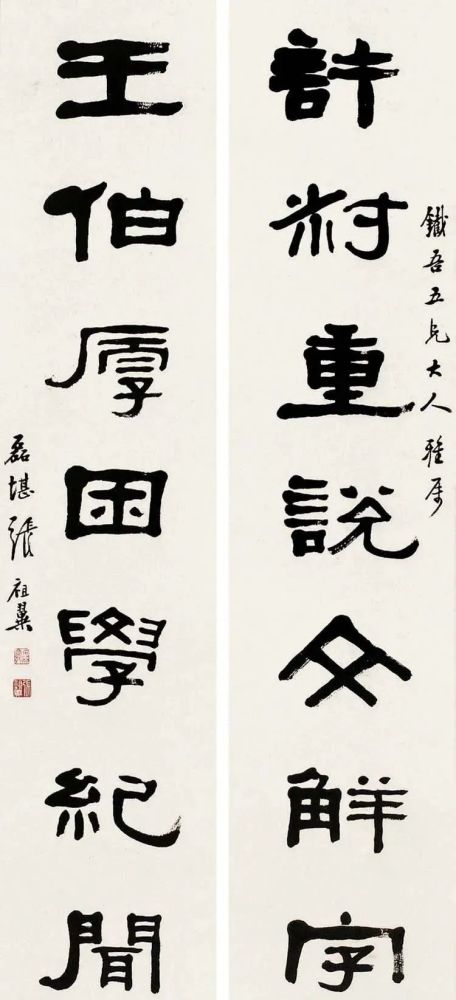 鐵吾五兄大人雅属
許叔重說文觧字
王伯厚困學紀聞
磊堪張祖翼